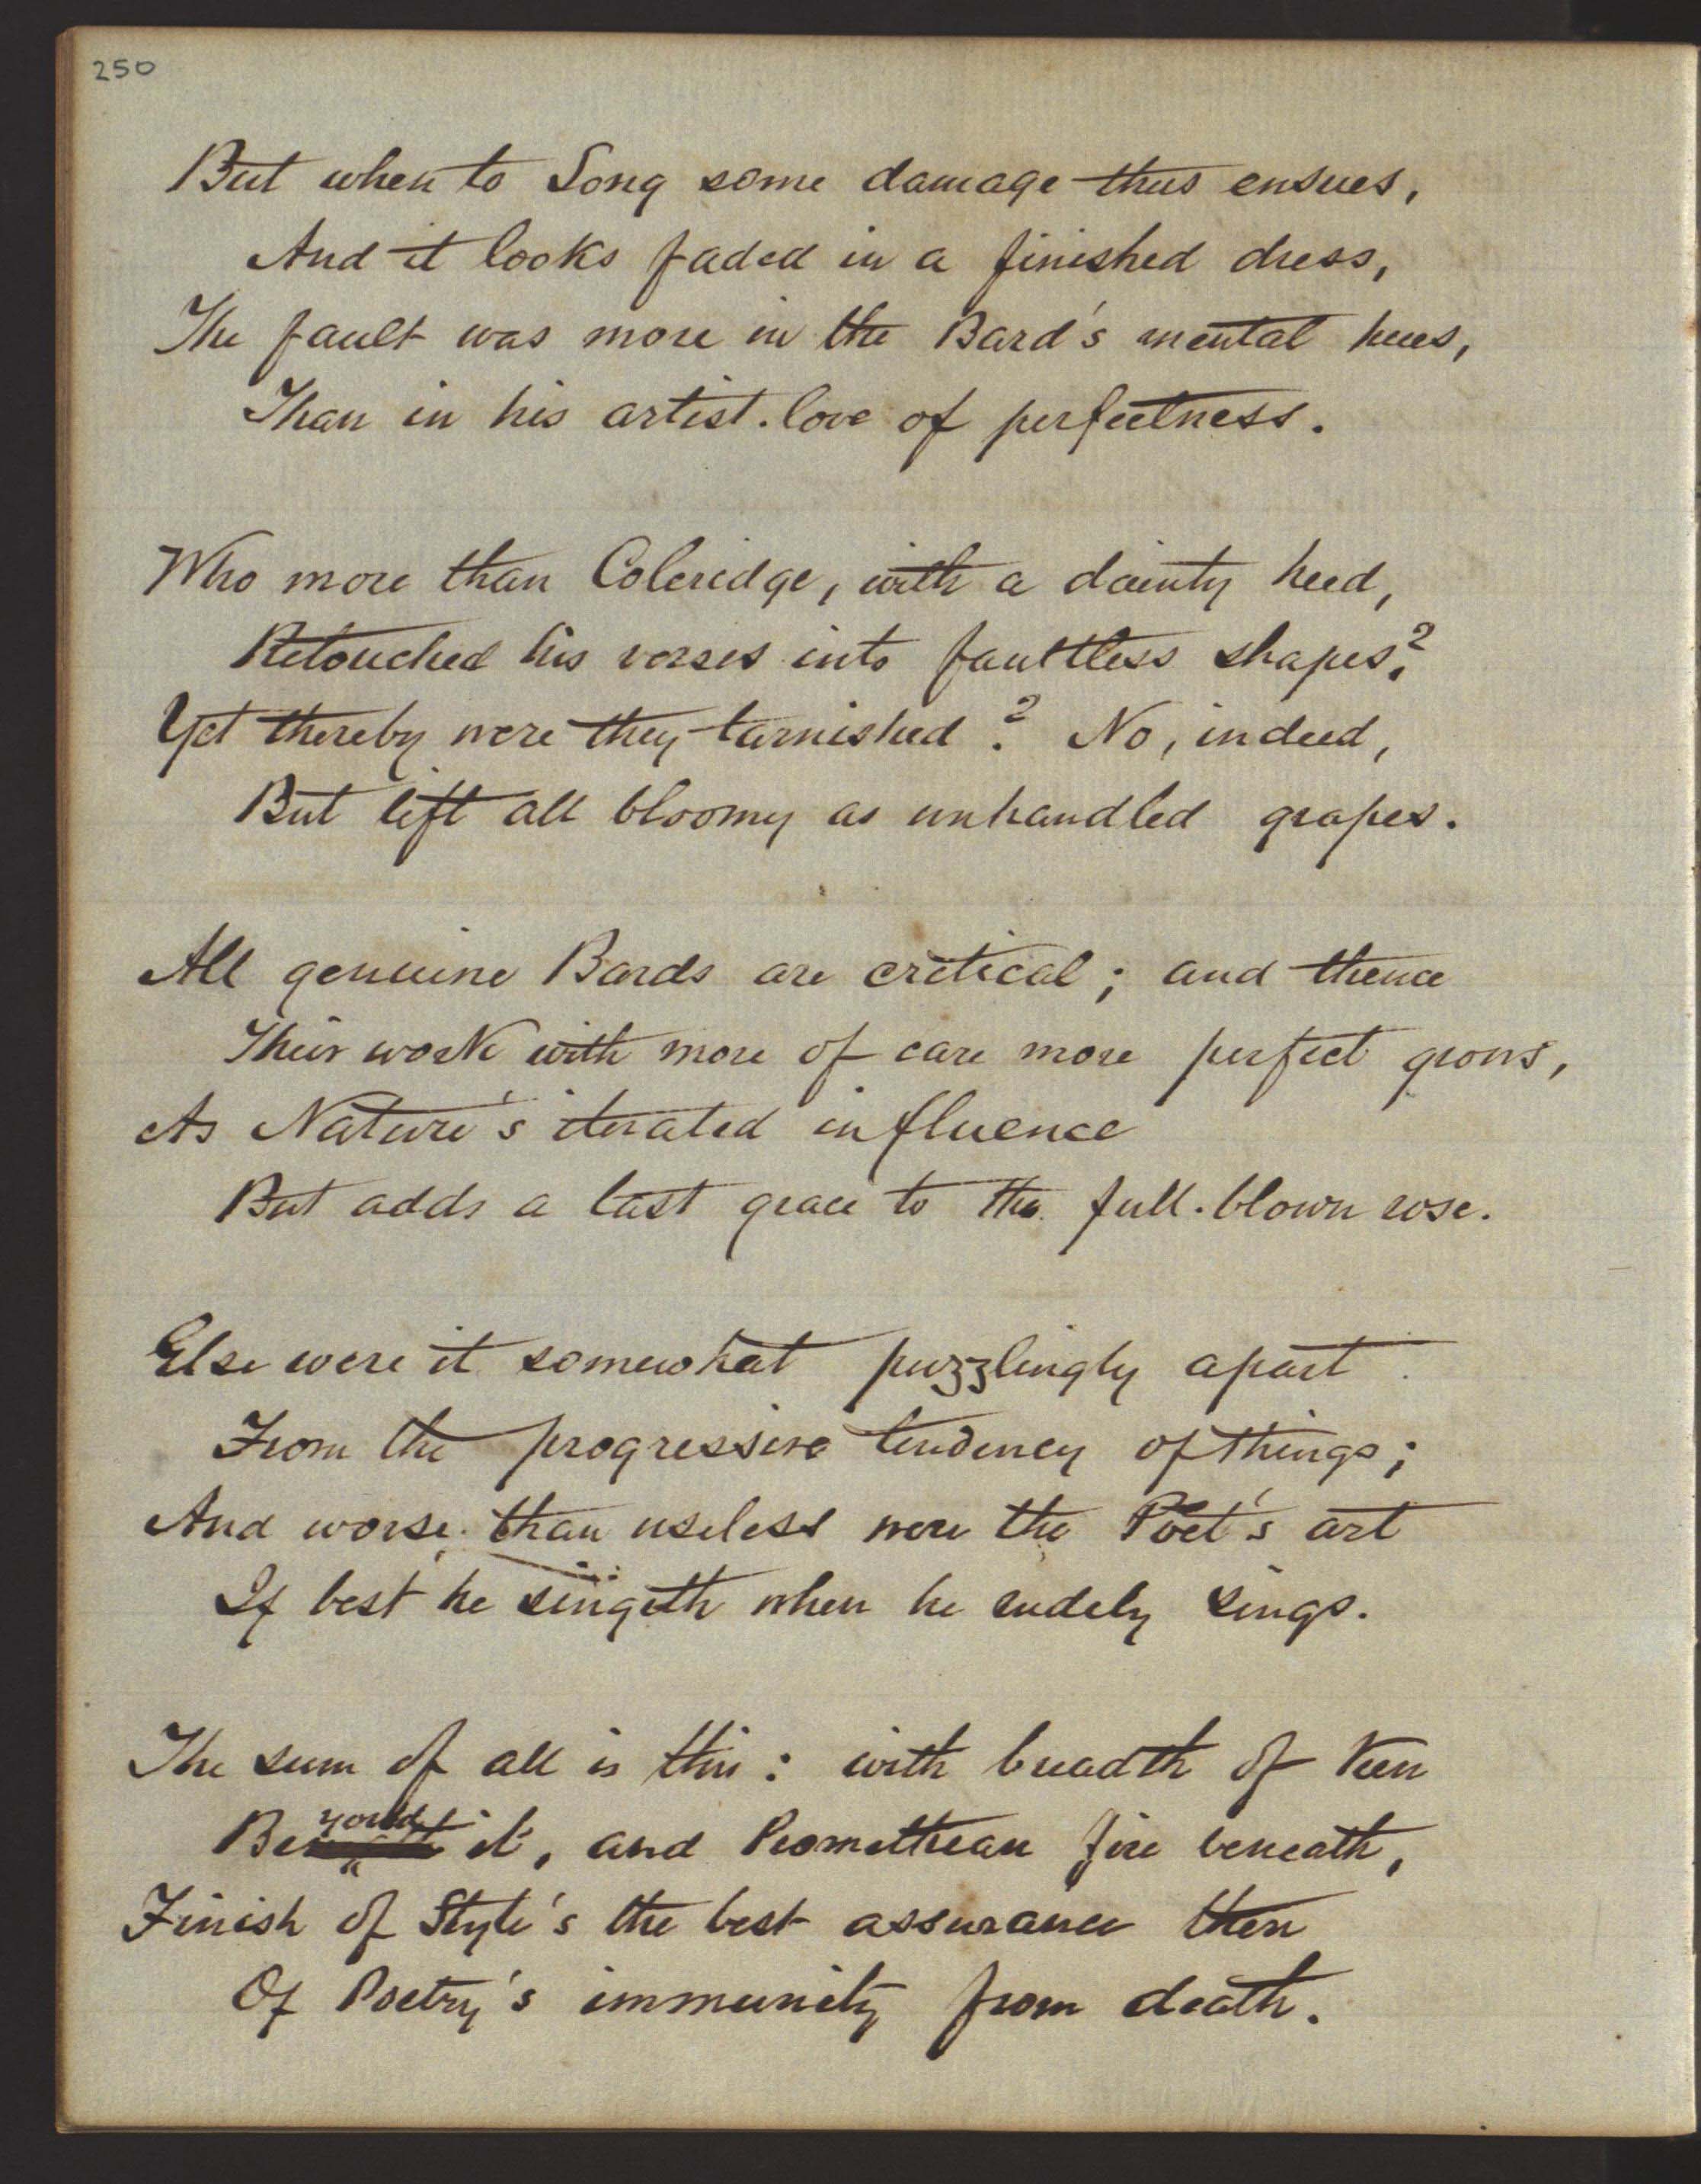 250
But when to Song some damage thus ensues,
And it looks faded in a finished dress,
The fault was more in the Bard's mental hues,
Than in his artist-love of perfectness.
Who more than Coleridge, with a dainty heed,
Retouched his verses into faultless shapes?
Yet thereby were they tarnished? No, indeed,
But left all bloomy as unhandled grapes.
All genuine Bards are critical; and thence
Their work with more of care more perfect grows,
As Nature's iterated influence
But adds a last grace to the full-blown rose.
Else were it somewhat puzzlingly apart
From the progressive tendency of things;
And worse than useless were the Poet's art
If best he singeth when he rudely sings.
The sum of all is this: with breadth of ken
Beyond it, and Promethean fire beneath,
Finish of Style's the best assurance then
Of Poetry's immunity from death.